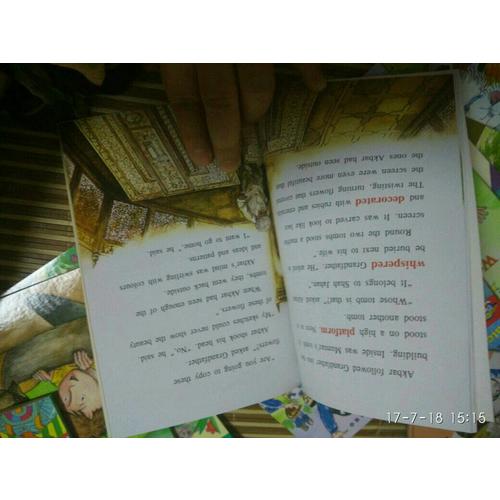 Akbar followed Grandfather into the
building. Inside was Mumtaz's tomb.
stood on a high platform. Next
stood another tomb.
"Whose tomb is that?" Akbar asked
"It belongs to Shah Jahan,"
whispered Grandfather. "He asked
be buried next to his wife."
Round the two tombs stood a marble
screen. It was carved to look like lace
and decorated with rubies and emeralds
The twisting, turning flowers that covered
the screen were even more beautiful than
the ones Akbar had seen outside.
"Are you going to copy these
flowers?" asked Grandfather.
Akbar shook his head. "No," he said.
"My sketches could never show the beauty
of these flowers."
When Akbar had seen enough of the
tombs, they went back outside.
Akbar's mind was swirling with colours
and ideas and patterns.
"I want to go home," he said.
17-7-18 15:15